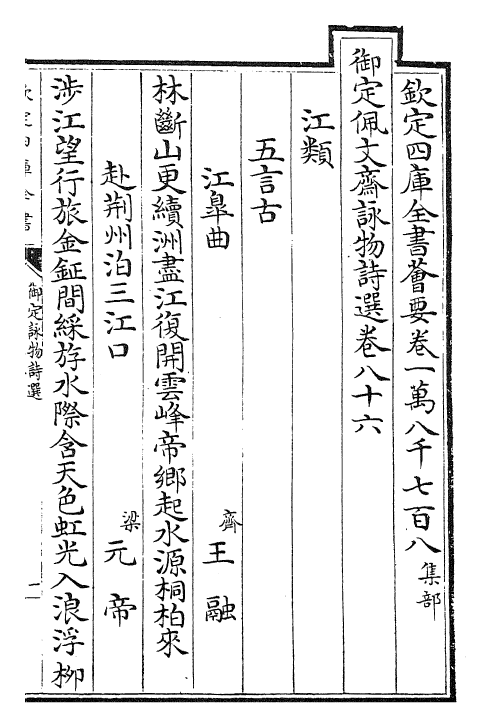 欽定四庫全書薈要卷一萬八千七百八 集部
御定佩文齋詠物詩選卷八十六
江類
五言古
江臯曲 齊 王融
林斷山更續洲盡江復開雲峰帝鄉起水源桐柏來
赴荆州泊三江口 梁 元帝
涉江望行旅金鉦間綵斿水際含天色虹光入浪浮柳
欽定四庫全書
御定詠物詩選